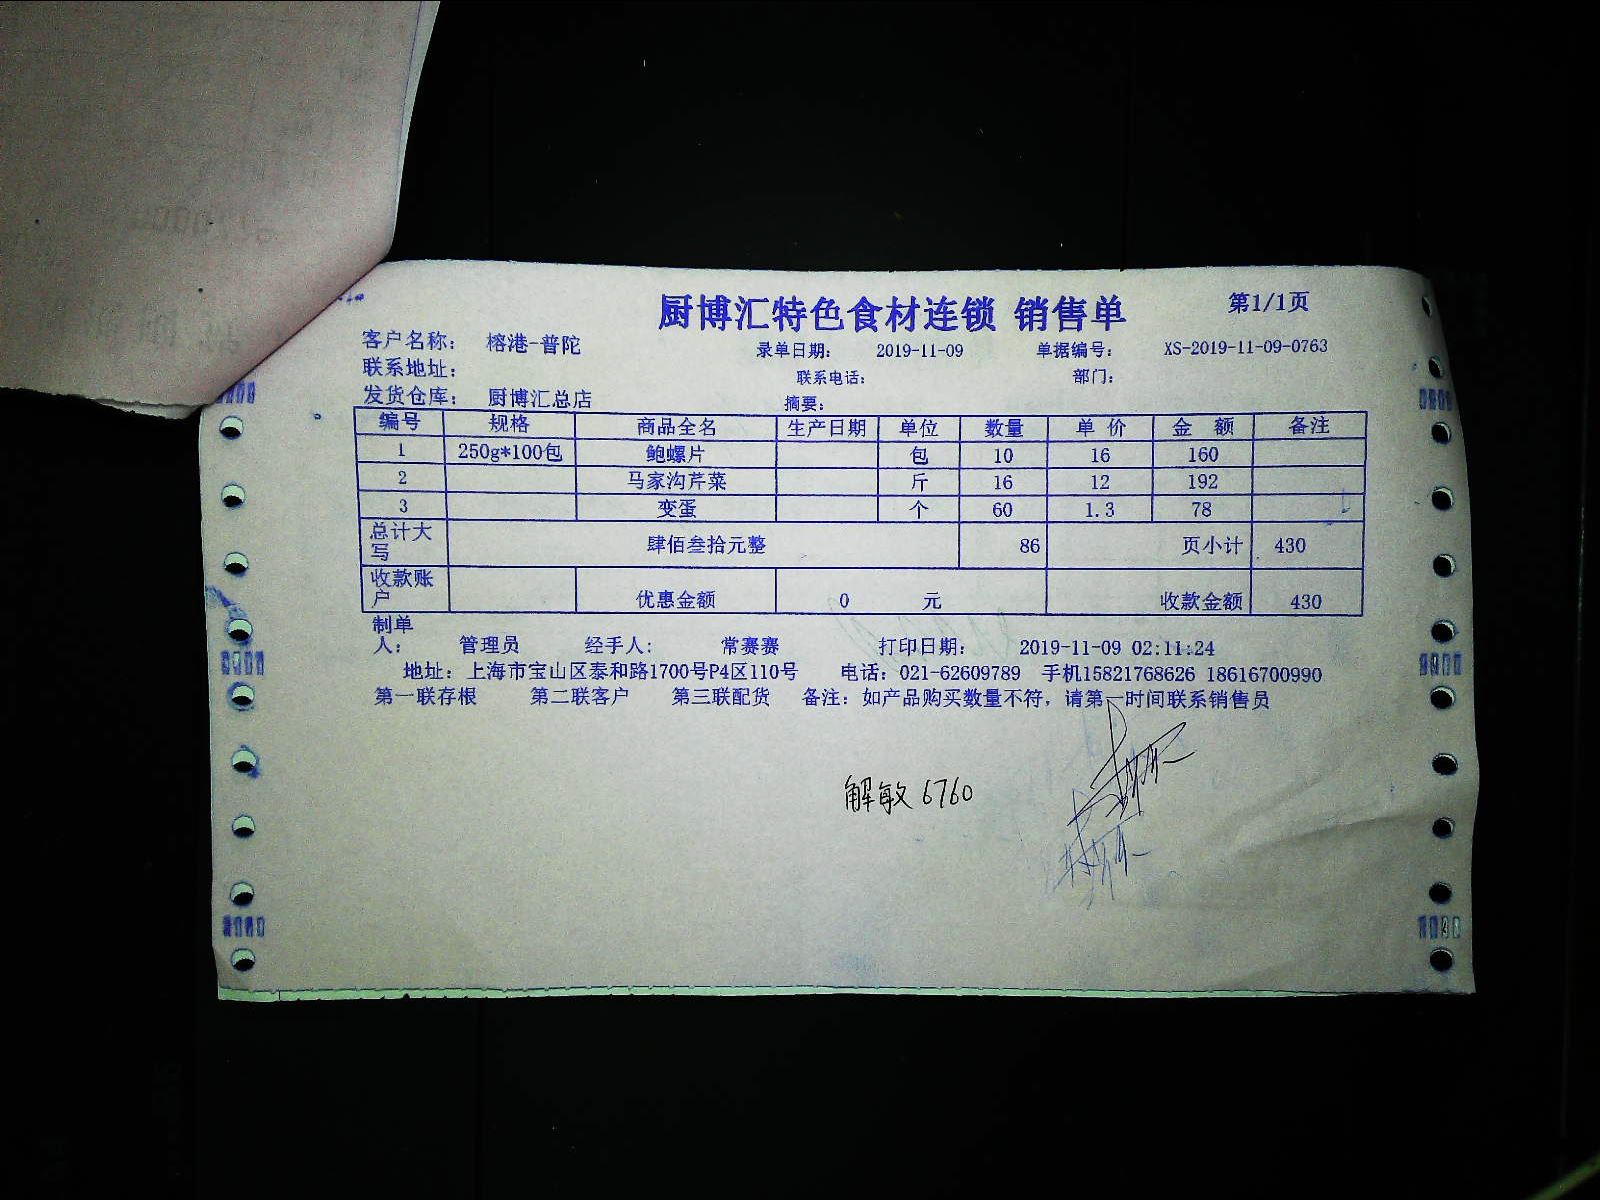 厨博汇特色食材连锁 销售单 第1/1页
客户名称： 榕港-普陀 录单日期： 2019-11-09 单据编号： XS-2019-11-09-0763
联系地址： 联系电话： 部门：
发货仓库： 厨博汇总店 摘要：
编号 规格 商品全名 生产日期 单位 数量 单 价 金 额 备注
1 250g*100包 鲍螺片 包 10 16 160
2 马家沟芹菜 斤 16 12 192
3 变蛋 个 60 1.3 78
总计大写 肆佰叁拾元整 86 页小计 430
收款账户 优惠金额 0 元 收款金额 430
制单人： 管理员 经手人： 常赛赛 打印日期： 2019-11-09 02:11:24
地址：上海市宝山区泰和路1700号P4区110号 电话：021-62609789 手机15821768626 18616700990
第一联存根 第二联客户 第三联配货 备注：如产品购买数量不符，请第一时间联系销售员
解敏 6760